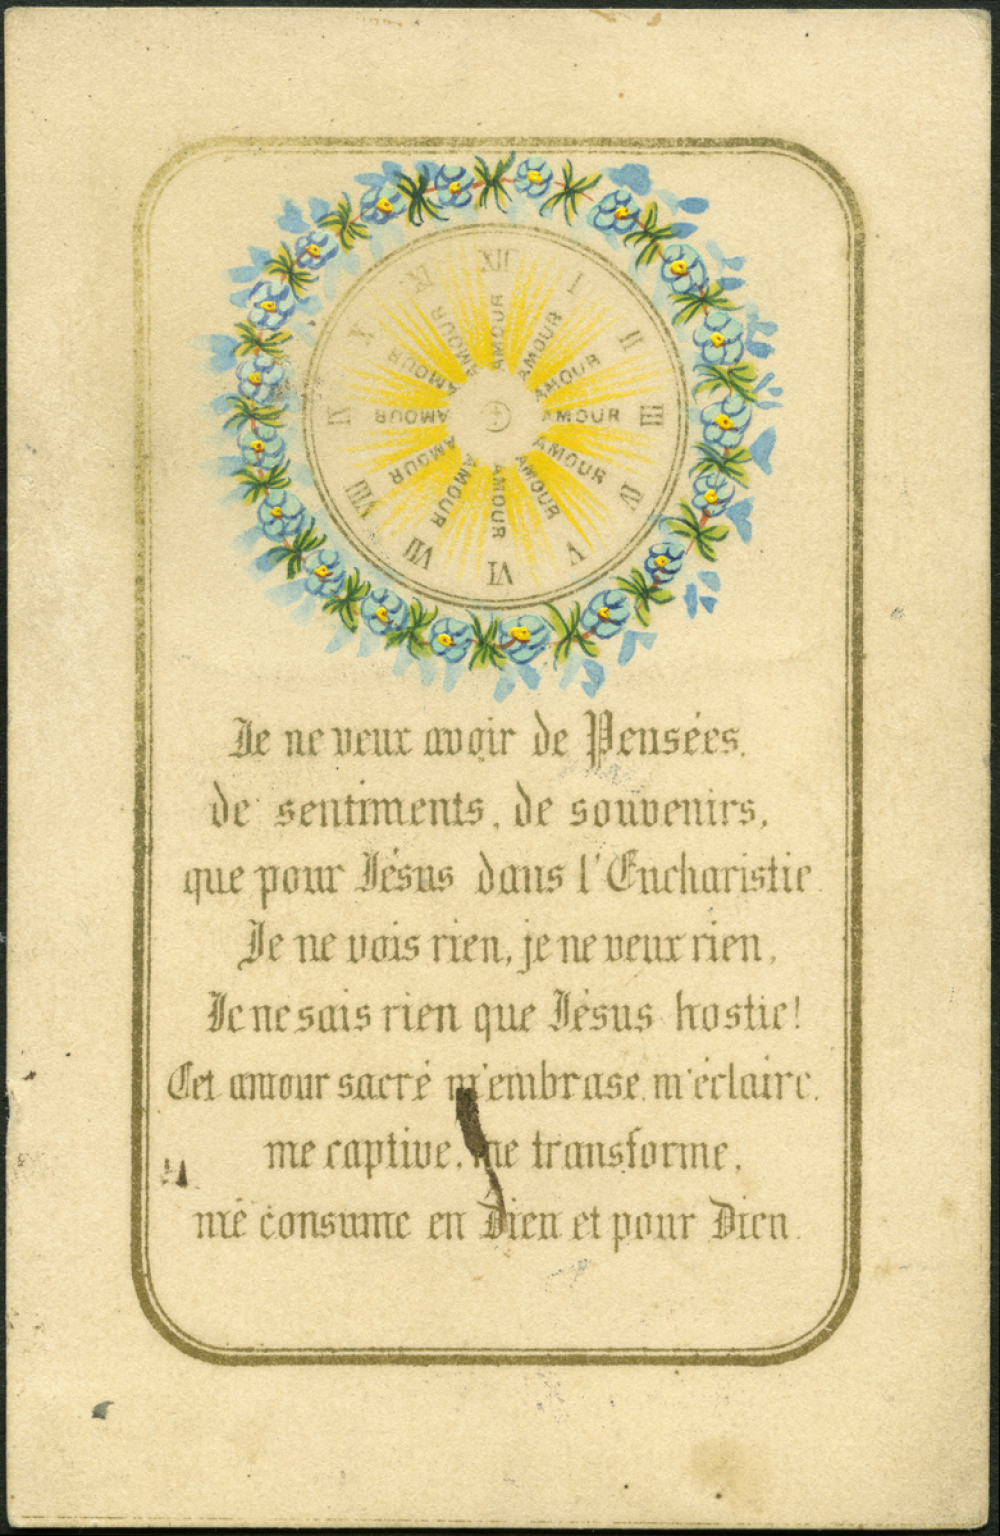 XII
I
II
III
IV
V
VI
VII
VIII
IX
X
XI
AMOUR
AMOUR
AMOUR
AMOUR
AMOUR
AMOUR
AMOUR
AMOUR
AMOUR
AMOUR
AMOUR
AMOUR
Je ne veux avoir de Pensées,
de sentiments, de souvenirs,
que pour Jésus dans l'Eucharistie.
Je ne vois rien, je ne veux rien,
Je ne sais rien que Jésus hostie!
Cet amour sacré m'embrase, m'éclaire,
me captive, me transforme,
me consume en Dieu et pour Dieu.